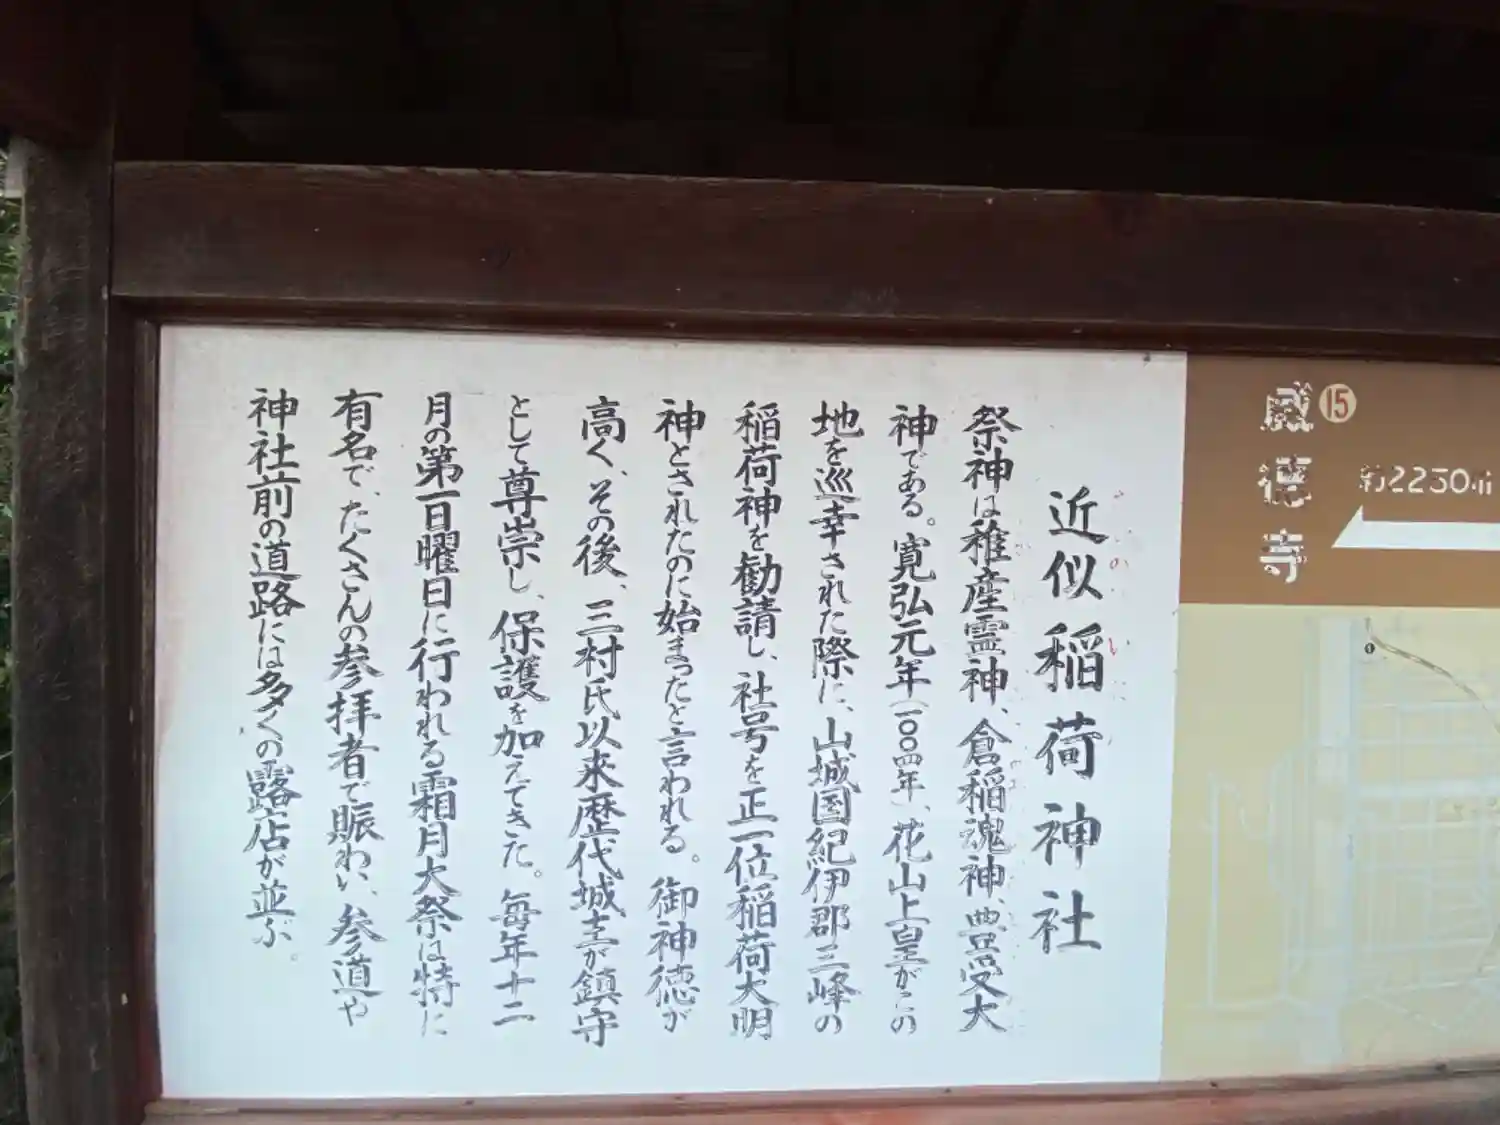 近似稲荷神社
祭神は稚産霊神、倉稲魂神、豊受大
神である。寛弘元年(一〇〇四年)、花山上皇がこの
地を巡幸された際に、山城国紀伊郡三峰の
稲荷神を勧請し、社号を正一位稲荷大明
神とされたのに始まったと言われる。御神徳が
高く、その後、三村氏以来歴代城主が鎮守
として尊崇し、保護を加えてきた。毎年十二
月の第一日曜日に行われる霜月大祭は特に
有名で、たくさんの参拝者で賑わい、参道や
神社前の道路には多くの露店が並ぶ。
⑮
威徳寺
約2230m